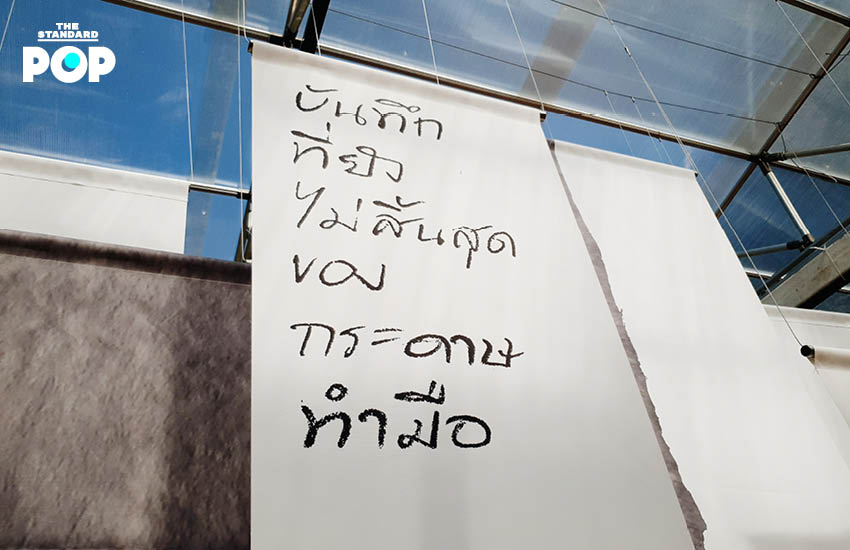 THE
STANDARD
POP
บันทึก
ที่ยัง
ไม่สิ้นสุด
ของ
กระดาษ
ทำมือ